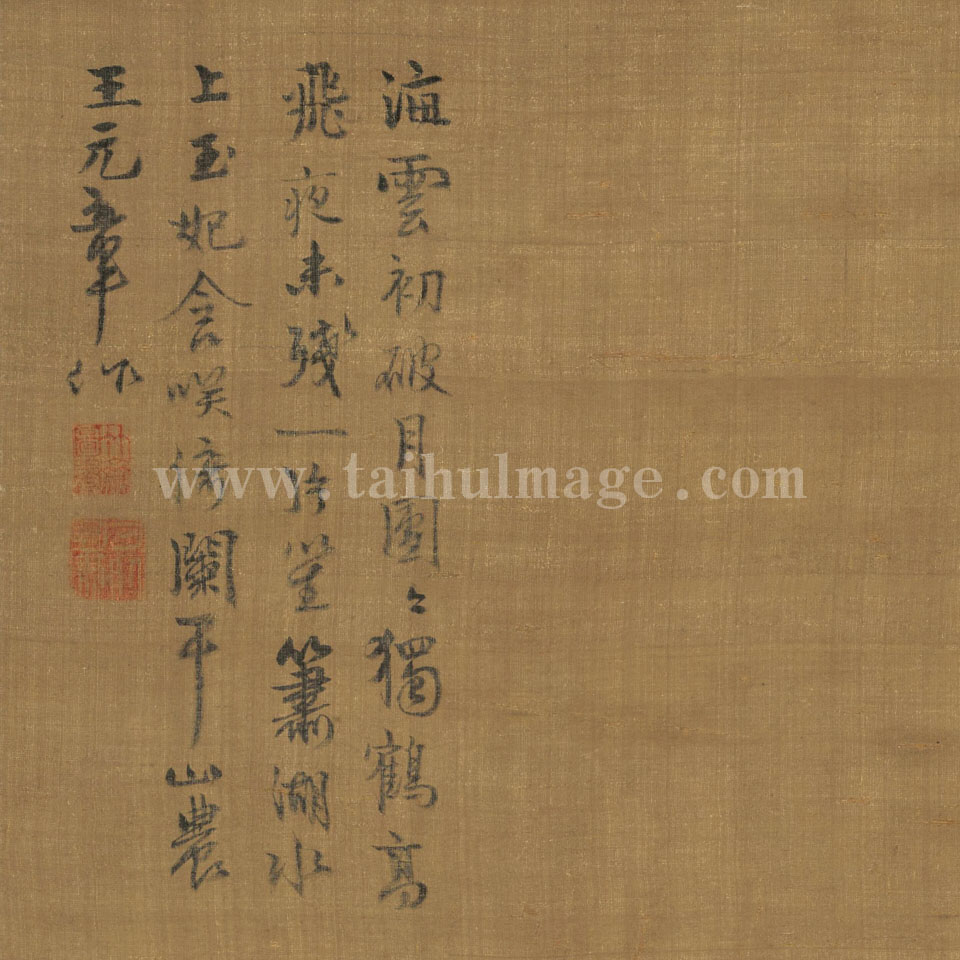 海雲初破月團々獨鶴高
飛夜未殘一笙簫湖水
上玉妃含咲倚闌干山農
王元章作
www.taihuImage.com